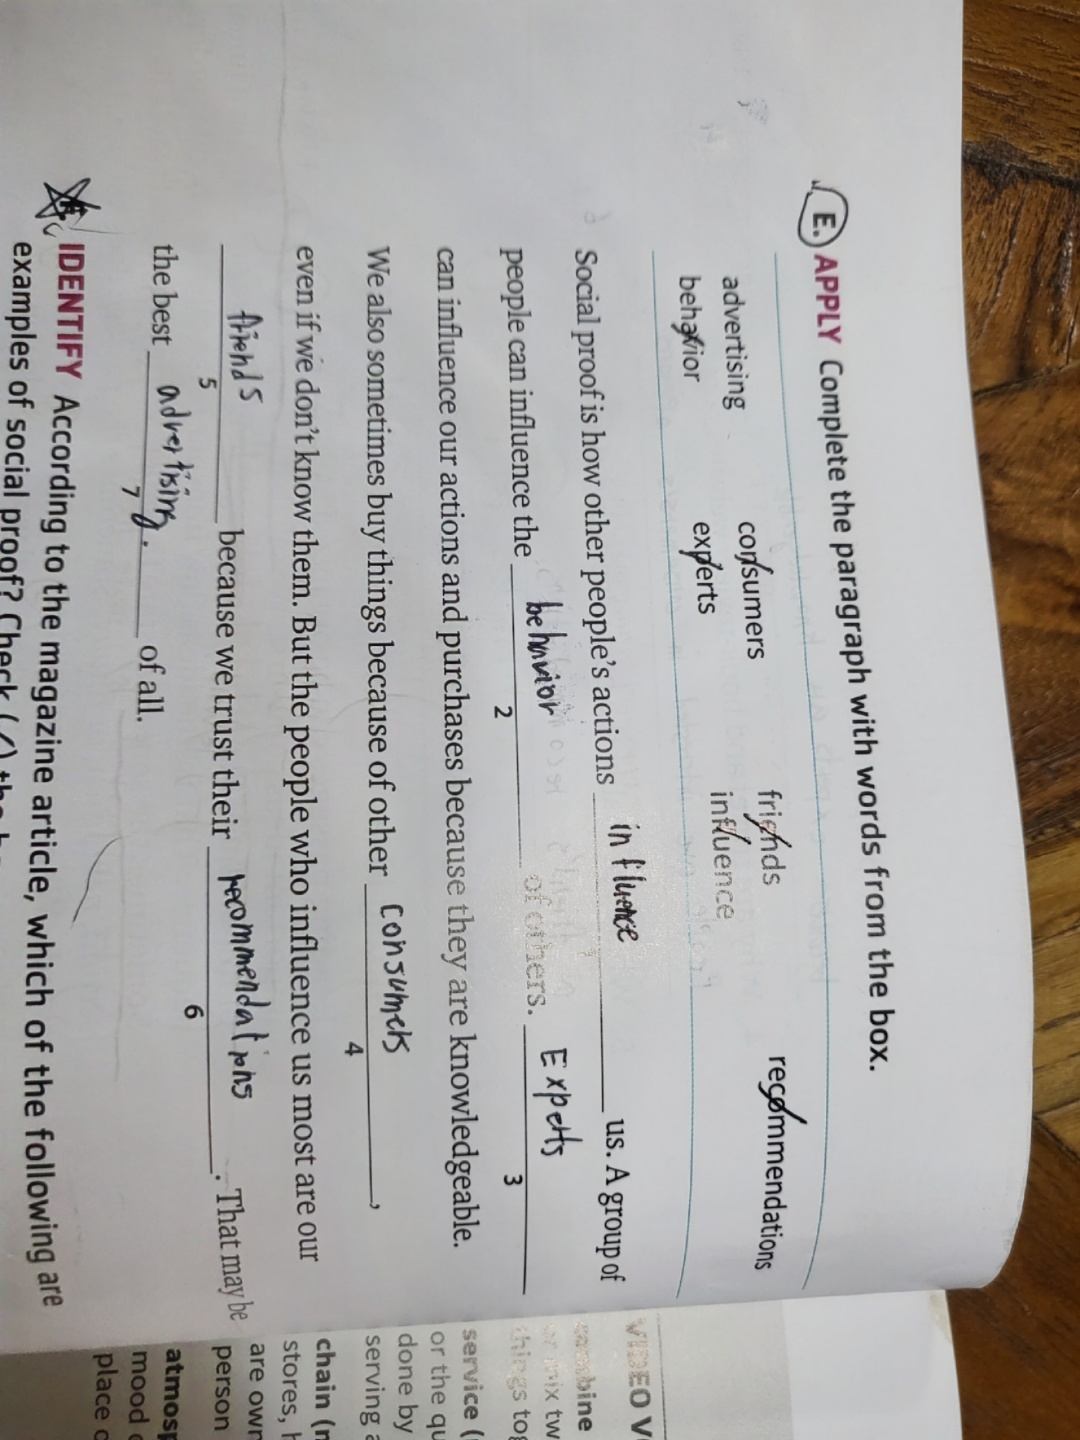 E. APPLY Complete the paragraph with words from the box.
advertising consumers friends recommendations
behavior experts influence
Social proof is how other people's actions influence us. A group of
people can influence the behavior 2 of others. Experts 3
can influence our actions and purchases because they are knowledgeable.
We also sometimes buy things because of other consumers 4,
even if we don't know them. But the people who influence us most are our
friends 5 because we trust their recommendations 6. That may be
the best advertising. 7 of all.
IDENTIFY According to the magazine article, which of the following are
examples of social proof? Check (✓)
VIDEO
service (
or the
done by
serving
chain (
stores,
are own
person
atmosp
mood
place